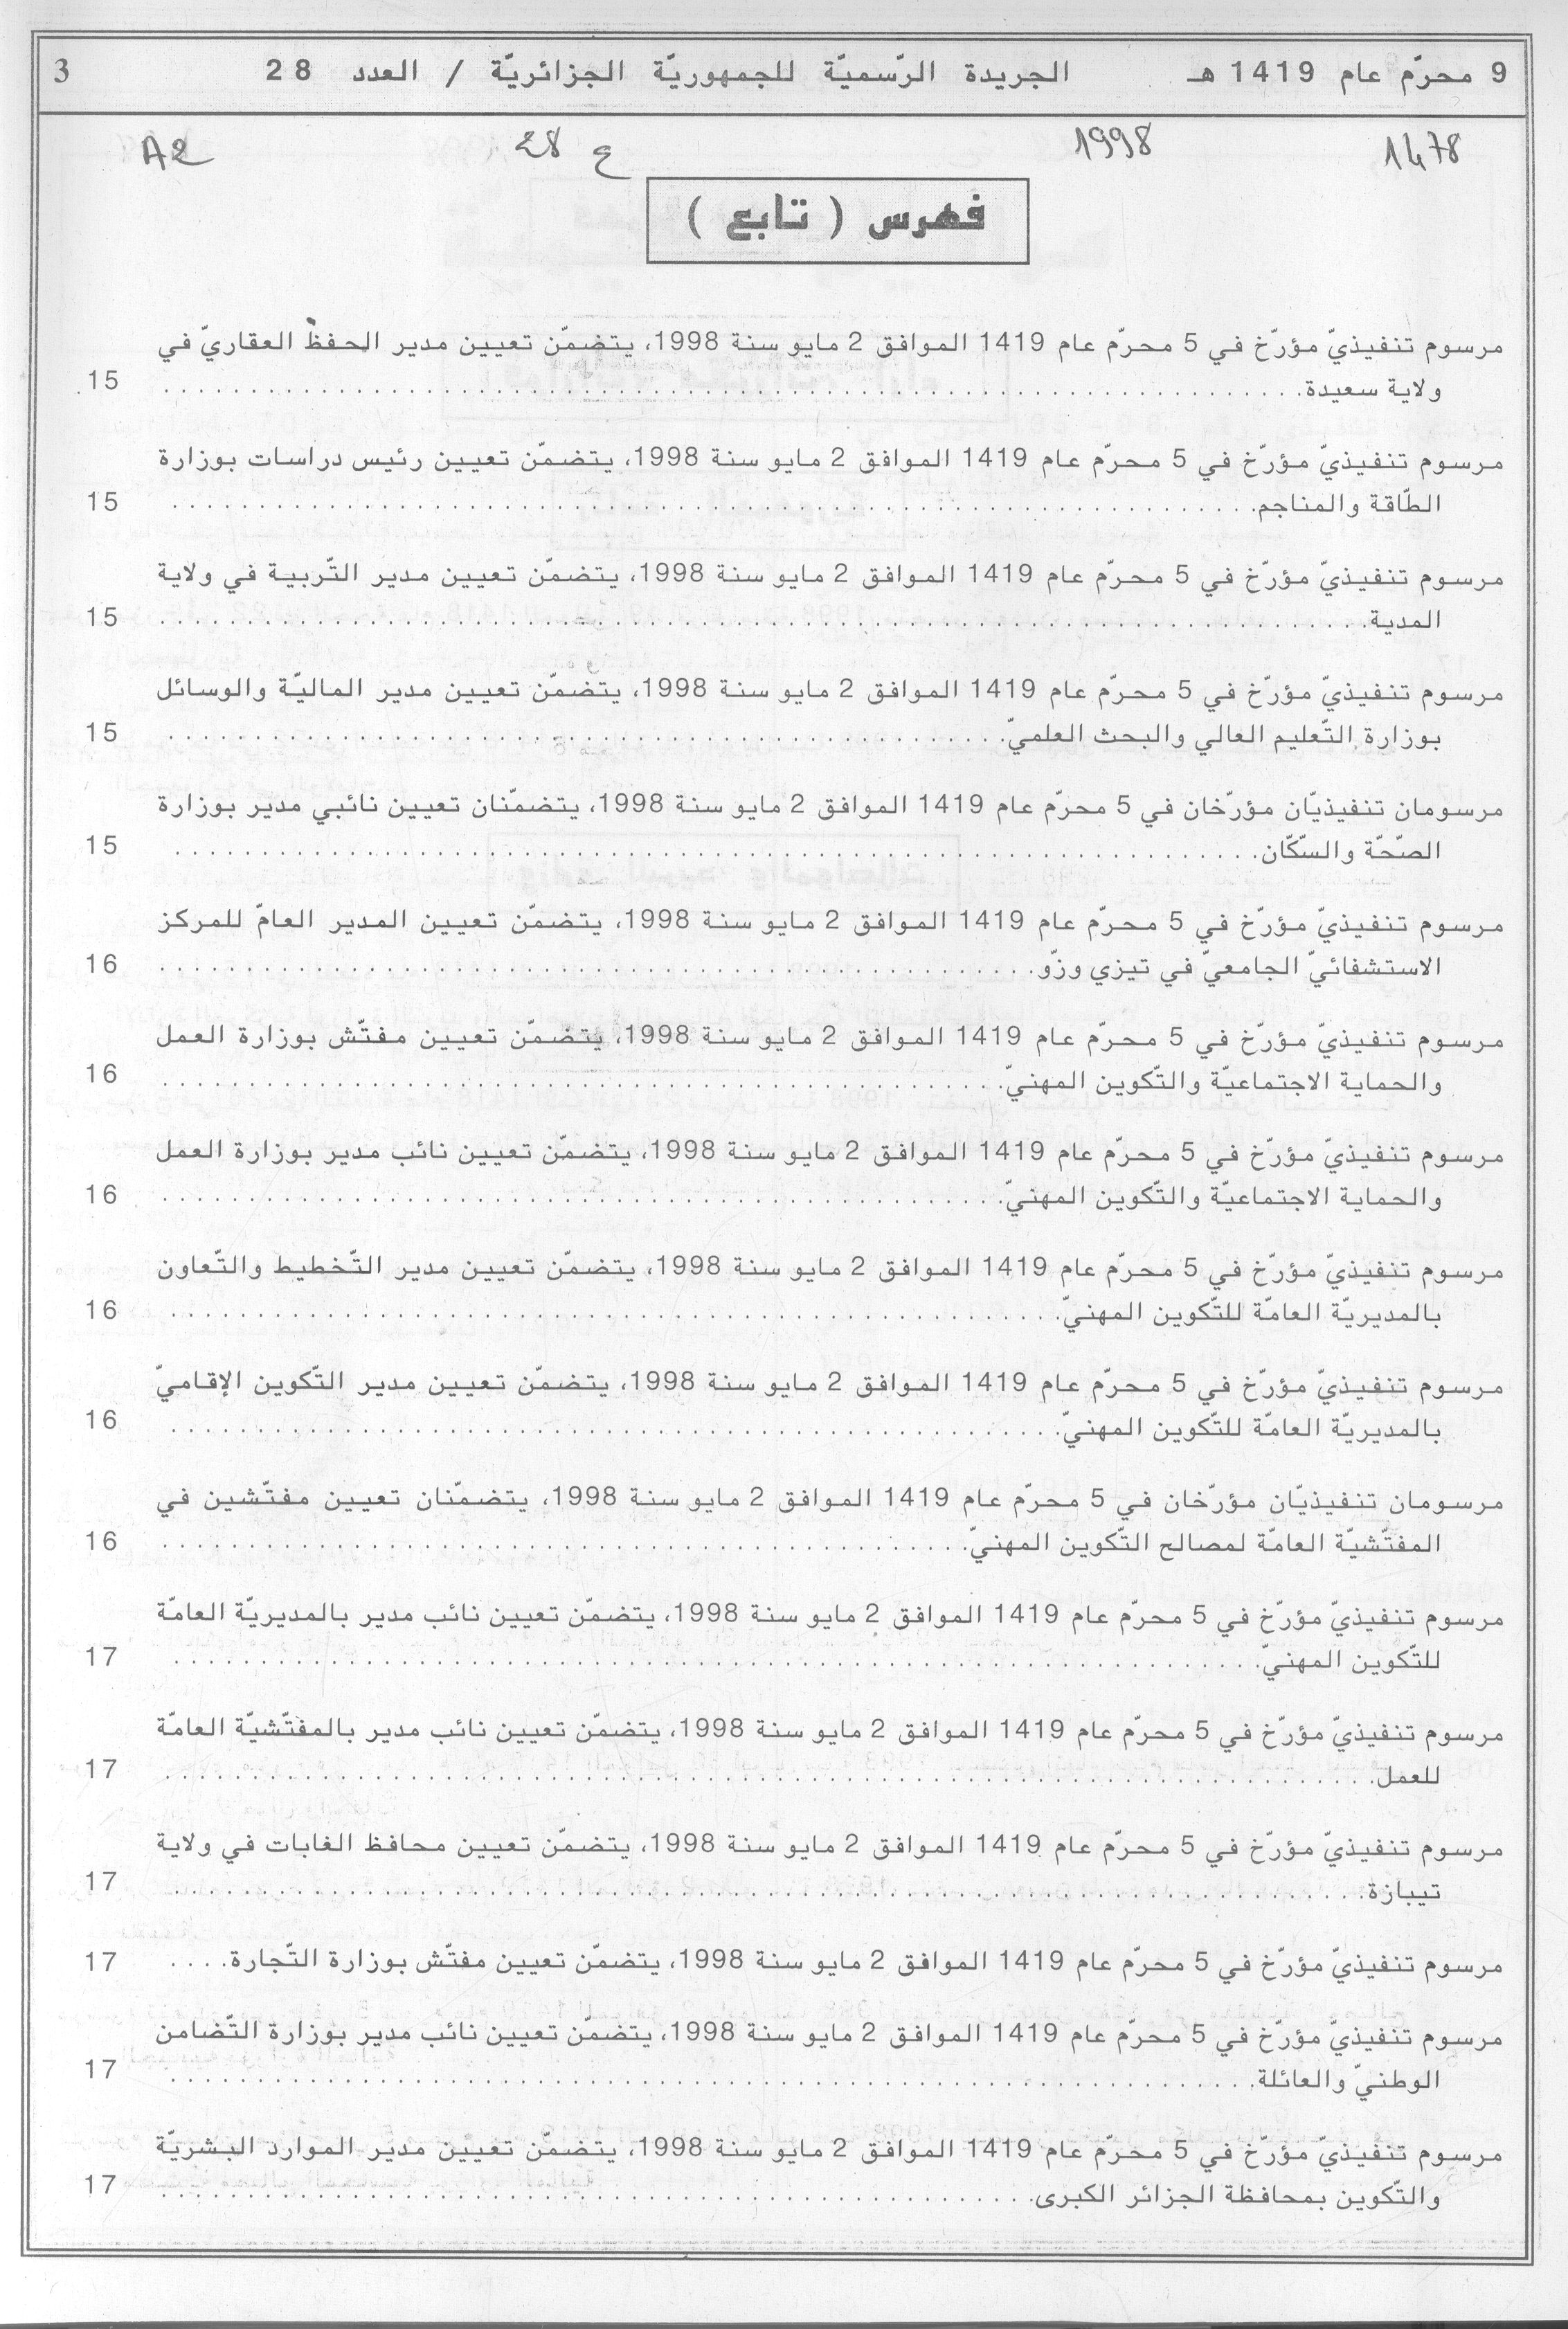 9 محرّم عام 1419 هـ الجريدة الرّسميّة للجمهوريّة الجزائريّة / العدد 28 3
1478 1998 ع 28 A2
فهرس ( تابع )
مرسوم تنفيذيّ مؤرّخ في 5 محرّم عام 1419 الموافق 2 مايو سنة 1998، يتضمّن تعيين مدير الحفظ العقاريّ في
ولاية سعيدة. 15
مرسوم تنفيذيّ مؤرّخ في 5 محرّم عام 1419 الموافق 2 مايو سنة 1998، يتضمّن تعيين رئيس دراسات بوزارة
الطّاقة والمناجم. 15
مرسوم تنفيذيّ مؤرّخ في 5 محرّم عام 1419 الموافق 2 مايو سنة 1998، يتضمّن تعيين مدير التّربية في ولاية
المدية. 15
مرسوم تنفيذيّ مؤرّخ في 5 محرّم عام 1419 الموافق 2 مايو سنة 1998، يتضمّن تعيين مدير الماليّة والوسائل
بوزارة التّعليم العالي والبحث العلميّ. 15
مرسومان تنفيذيّان مؤرّخان في 5 محرّم عام 1419 الموافق 2 مايو سنة 1998، يتضمّنان تعيين نائبي مدير بوزارة
الصّحّة والسّكّان. 15
مرسوم تنفيذيّ مؤرّخ في 5 محرّم عام 1419 الموافق 2 مايو سنة 1998، يتضمّن تعيين المدير العامّ للمركز
الاستشفائيّ الجامعيّ في تيزي وزّو. 16
مرسوم تنفيذيّ مؤرّخ في 5 محرّم عام 1419 الموافق 2 مايو سنة 1998، يتضمّن تعيين مفتّش بوزارة العمل
والحماية الاجتماعيّة والتّكوين المهنيّ. 16
مرسوم تنفيذيّ مؤرّخ في 5 محرّم عام 1419 الموافق 2 مايو سنة 1998، يتضمّن تعيين نائب مدير بوزارة العمل
والحماية الاجتماعيّة والتّكوين المهنيّ. 16
مرسوم تنفيذيّ مؤرّخ في 5 محرّم عام 1419 الموافق 2 مايو سنة 1998، يتضمّن تعيين مدير التّخطيط والتّعاون
بالمديريّة العامّة للتّكوين المهنيّ. 16
مرسوم تنفيذيّ مؤرّخ في 5 محرّم عام 1419 الموافق 2 مايو سنة 1998، يتضمّن تعيين مدير التّكوين الإقاميّ
بالمديريّة العامّة للتّكوين المهنيّ. 16
مرسومان تنفيذيّان مؤرّخان في 5 محرّم عام 1419 الموافق 2 مايو سنة 1998، يتضمّنان تعيين مفتّشين في
المفتّشيّة العامّة لمصالح التّكوين المهنيّ. 16
مرسوم تنفيذيّ مؤرّخ في 5 محرّم عام 1419 الموافق 2 مايو سنة 1998، يتضمّن تعيين نائب مدير بالمديريّة العامّة
للتّكوين المهنيّ. 17
مرسوم تنفيذيّ مؤرّخ في 5 محرّم عام 1419 الموافق 2 مايو سنة 1998، يتضمّن تعيين نائب مدير بالمفتّشيّة العامّة
للعمل. 17
مرسوم تنفيذيّ مؤرّخ في 5 محرّم عام 1419 الموافق 2 مايو سنة 1998، يتضمّن تعيين محافظ الغابات في ولاية
تيبازة. 17
مرسوم تنفيذيّ مؤرّخ في 5 محرّم عام 1419 الموافق 2 مايو سنة 1998، يتضمّن تعيين مفتّش بوزارة التّجارة. 17
مرسوم تنفيذيّ مؤرّخ في 5 محرّم عام 1419 الموافق 2 مايو سنة 1998، يتضمّن تعيين نائب مدير بوزارة التّضامن
الوطنيّ والعائلة. 17
مرسوم تنفيذيّ مؤرّخ في 5 محرّم عام 1419 الموافق 2 مايو سنة 1998، يتضمّن تعيين مدير الموارد البشريّة
والتّكوين بمحافظة الجزائر الكبرى. 17